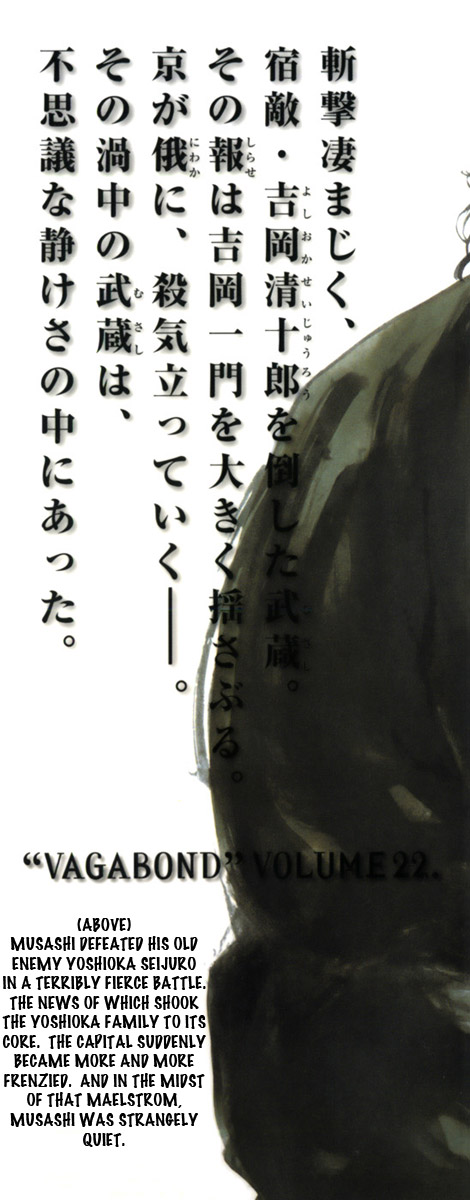 斬撃凄まじく、
宿敵・吉岡清十郎を倒した武蔵。
その報は吉岡一門を大きく揺さぶる。
京が俄に、殺気立っていく——。
その渦中の武蔵は、
不思議な静けさの中にあった。
“VAGABOND” VOLUME 22.
(ABOVE)
MUSASHI DEFEATED HIS OLD
ENEMY YOSHIOKA SEIJURO
IN A TERRIBLY FIERCE BATTLE.
THE NEWS OF WHICH SHOOK
THE YOSHIOKA FAMILY TO ITS
CORE. THE CAPITAL SUDDENLY
BECAME MORE AND MORE
FRENZIED. AND IN THE MIDST
OF THAT MAELSTROM,
MUSASHI WAS STRANGELY
QUIET.